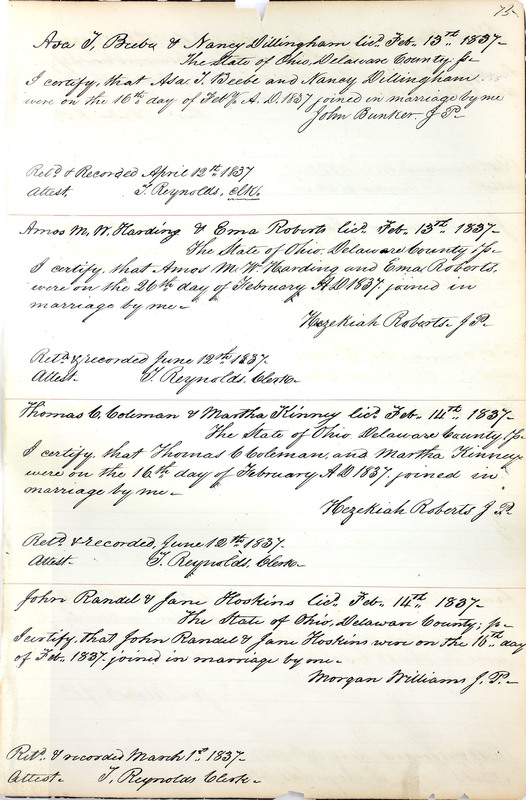 75
Asa T, Beebe & Nancy Dillingham lic'd Feb. 13th 1837-
The State of Ohio, Delaware County, ss-
I certify, that Asa. T. Beebe and Nancy Dillingham.
were on the 16th day of Feb'y A. D. 1837 joined in marriage by me
John Bunker. J P.
Ret'd & Recorded April 12th 1837
Attest. T. Reynolds, clk.
Amos M. W. Harding & Ema Roberts lic'd Feb. 13th 1837-
The State of Ohio, Delaware County, ss-
I certify, that Amos M. W. Harding and Ema, Roberts.
were on the 26th day of February A D 1837. joined in
marriage by me-
Hezekiah Roberts. J P.
Ret'd & recorded June 12th 1837.
Attest. T. Reynolds. Clerk-
Thomas C. Coleman & Martha Kinney lic'd Feb. 14th 1837-
The State of Ohio, Delaware County, ss-
I certify, that Thomas C Coleman, and Martha Kinney
were on the 16th day of February A D 1837. joined in
marriage by me-
Hezekiah Roberts J P.
Ret'd & recorded, June 12th 1837.
Attest- T. Reynolds. Clerk-
John Randel & Jane Hoskins lic'd Feb. 14th 1837-
The State of Ohio, Delaware County; ss-
I certify, that John Randel & Jane Hoskins were on the 16th day
of Feb. 1837. joined in marriage by me-
Morgan Williams J. P.-
Ret'd & recorded March 1st 1837-
Attest- T. Reynolds Clerk-